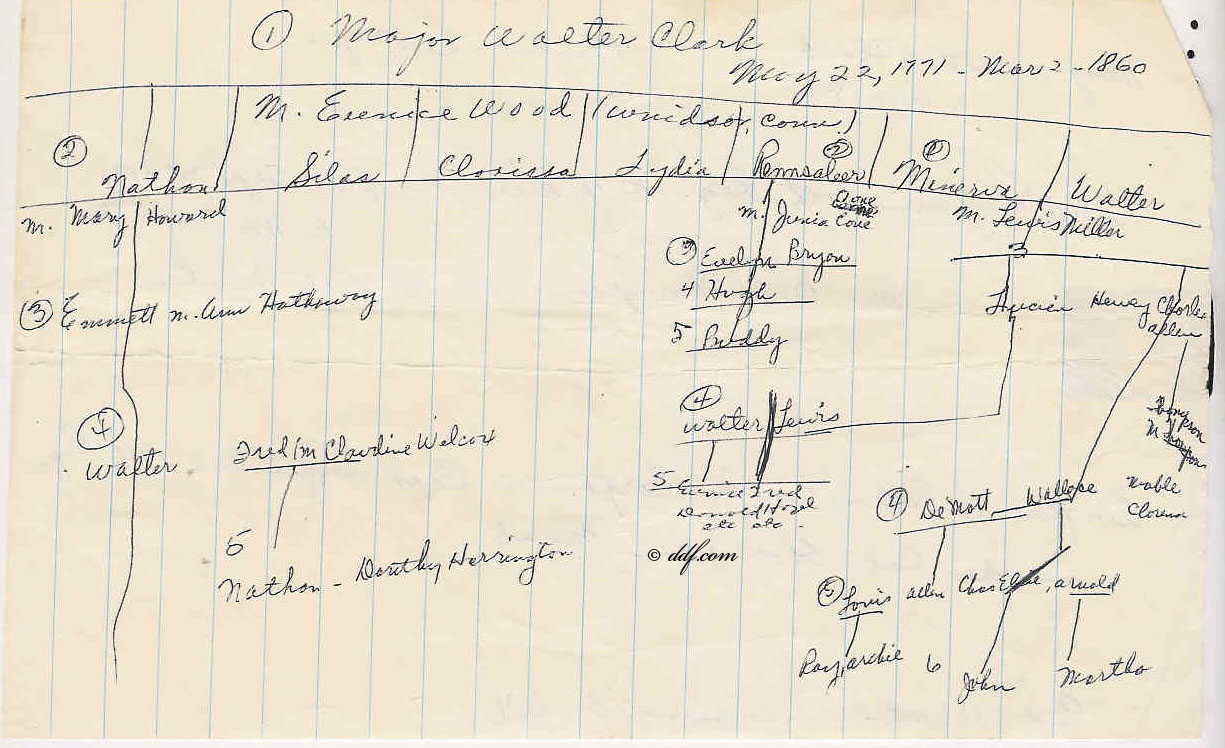 ① Major Walter Clark
May 22, 1771 - Mar 2 - 1860
M. Eunice Wood (Windsor, Conn.)
② Nathan Silas Clarissa Lydia Rennsaleer ② Minerva ② Walter
m. Mary Howard
m. Junia Cone
m. Lewis Miller
3
③ Evelyn Bryon
4 Hugh
5 Buddy
Lucien Henry Charles
allen
③ Emmett m. Ann Hathaway
④
Walter
Fred (m Claudine Welcox
④
Walter Lewis
5 Eunice Fred
Donald Hazel
etc etc.
④ DeMott Wallace
Mable
Clarena
5
Nathan - Dorothy Harrington
© ddf.com
⑤ Louis allen Chas Elsie, arnold
Ray, archie 6 John Martha